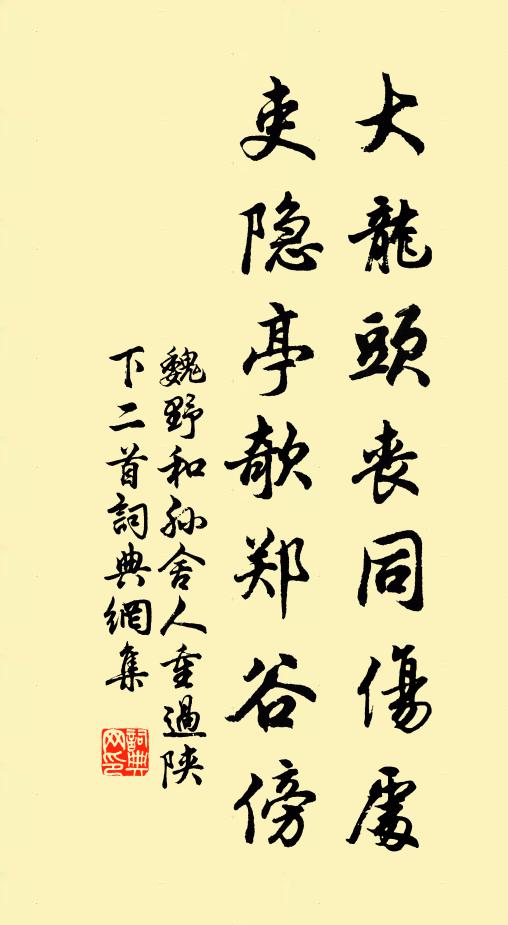 大龍頭喪同傷處
吏隐亭欹郑谷傍
魏野和孙舍人重過陕
下二首詞典網集
詞典
网印